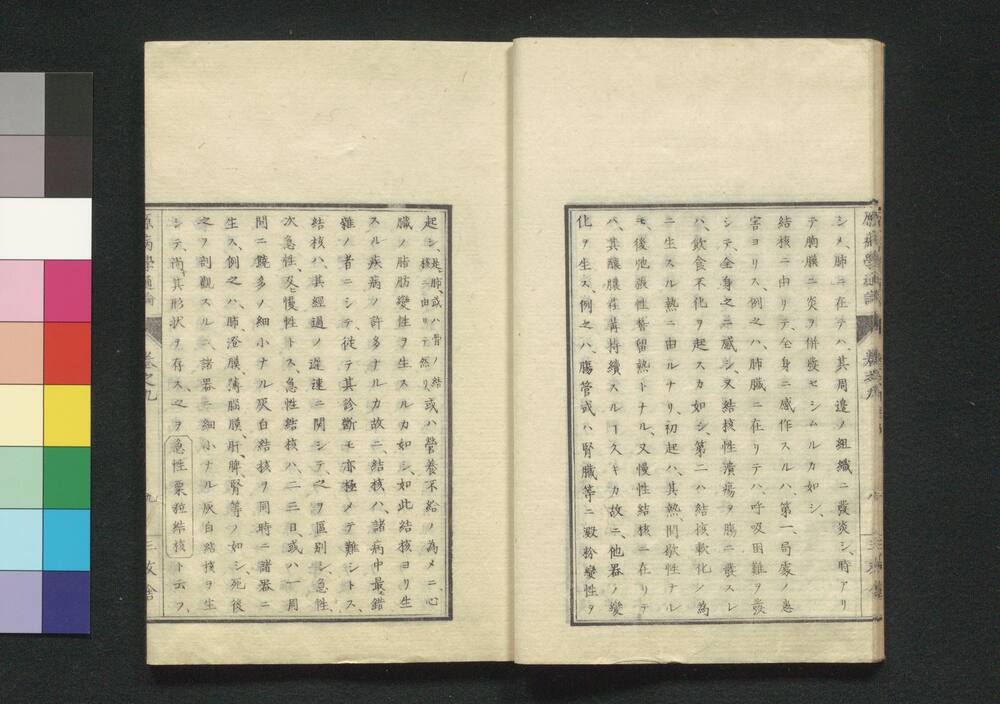 シメ、肺ニ在テハ、其周邊ノ組織ニ發炎シ、時アリ
テ胸膜ニ炎ヲ併發セシムルカ如シ、
結核ニ由リテ、全身ニ感作スルハ、第一、局處ノ患
害ヨリス、例之ハ、肺臓ニ在リテハ、呼吸困難ヲ發
シテ、全身之ニ感シ、又結核性潰瘍ヲ腸ニ發スレ
ハ、飲食不化ヲ起スカ如シ、第二ハ結核軟化シ為
ニ生スル熱ニ由ルナリ、初起ハ、其熱間歇性ナル
モ、後弛張性稽留熱トナル、又慢性結核ニ在リテ
ハ、其釀膿荏苒持續スルー久キカ故ニ、他器ノ變
化ヲ生ス、例之ハ、腸管或ハ腎臓等ニ澱粉變性ヲ
起シ、是レ肺、或ハ骨ノ結核ニ由リテ然リ、或ハ營養不給ノ為メニ心
臓ノ脂肪變性ヲ生スルカ如シ、如此結核ヨリ生
スル疾病ノ許多ナルカ故ニ、結核ハ、諸病中最錯
雜ノ者ニシテ、従テ其診斷モ亦極メテ難シトス、
結核ハ、其經過ノ遅速ニ関シテ、之ヲ區別シ、急性、
次急性、及ヒ慢性トス、急性結核ハ、二三日、或ハ一周
間ニ饒多ノ細小ナル灰白結核ヲ同時ニ諸器ニ
生ス、例之ハ、肺、澄膜、薄脳膜、肝、脾、腎等ノ如シ、死後
之ヲ剖觀スルニ、諸器ニ細小ナル灰白結核ヲ生
シテ、尚其形状ヲ存ス、之ヲ急性粟粒結核ト云フ、
原病學通論 巻之九 九 三友舎